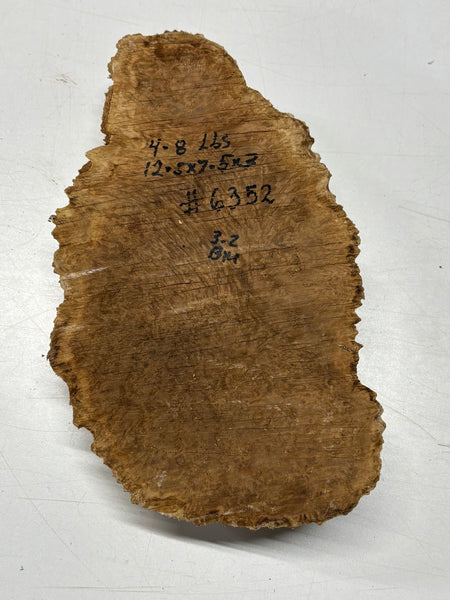 4-8 Lbs
12.5x7.5x3
#6352
3-2
BM